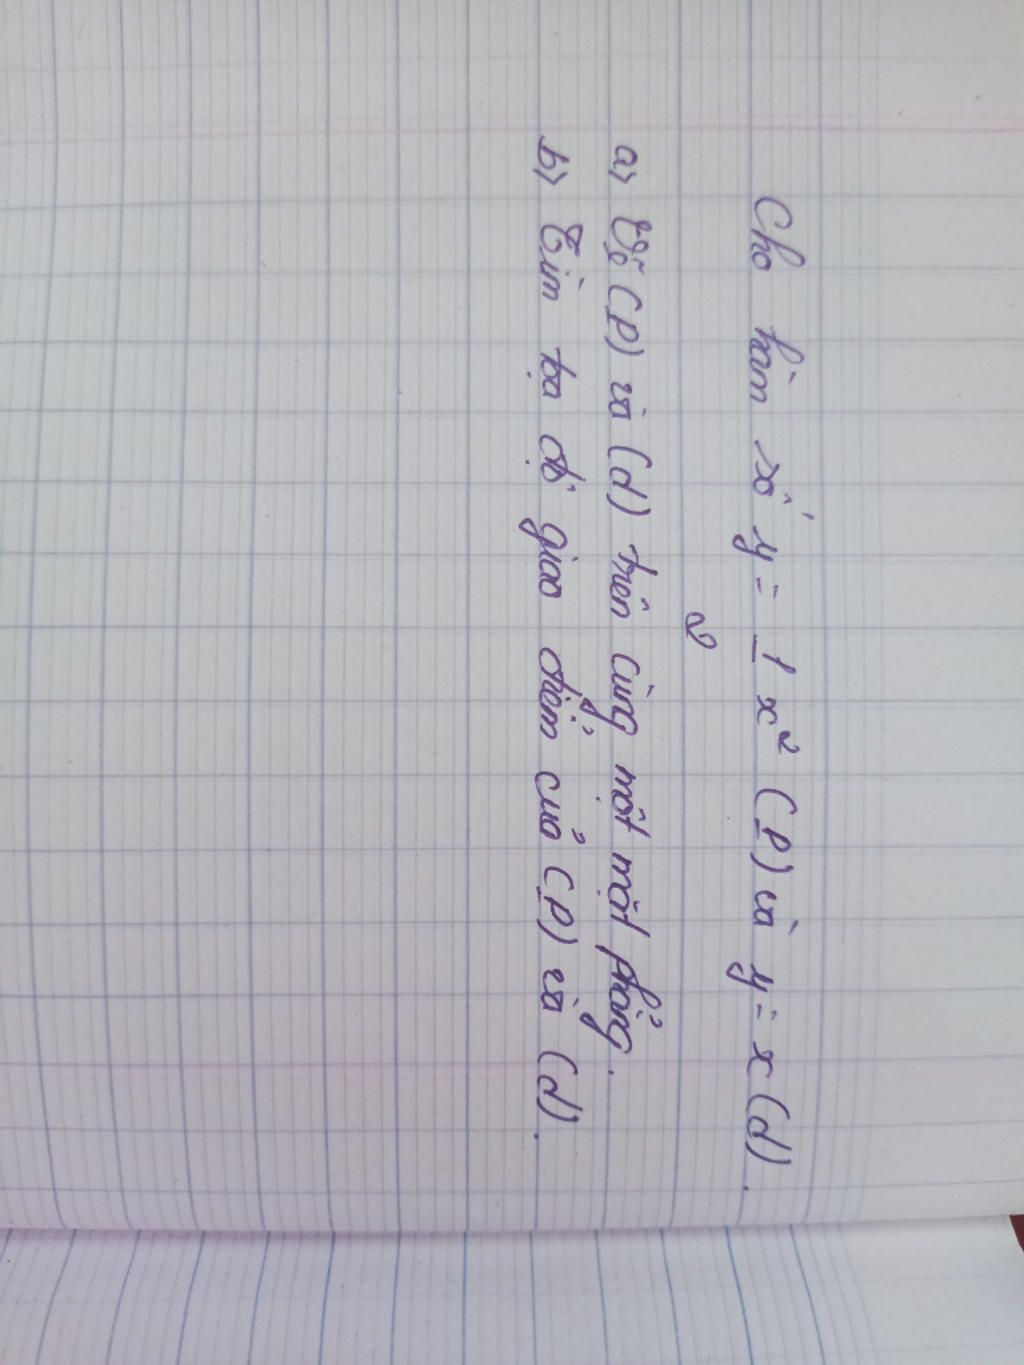 Cho hàm số y = 1/2 x² (P) và y = x (d).
a) Vẽ (P) và (d) trên cùng một mặt phẳng.
b) Tìm tọa độ giao điểm của (P) và (d).